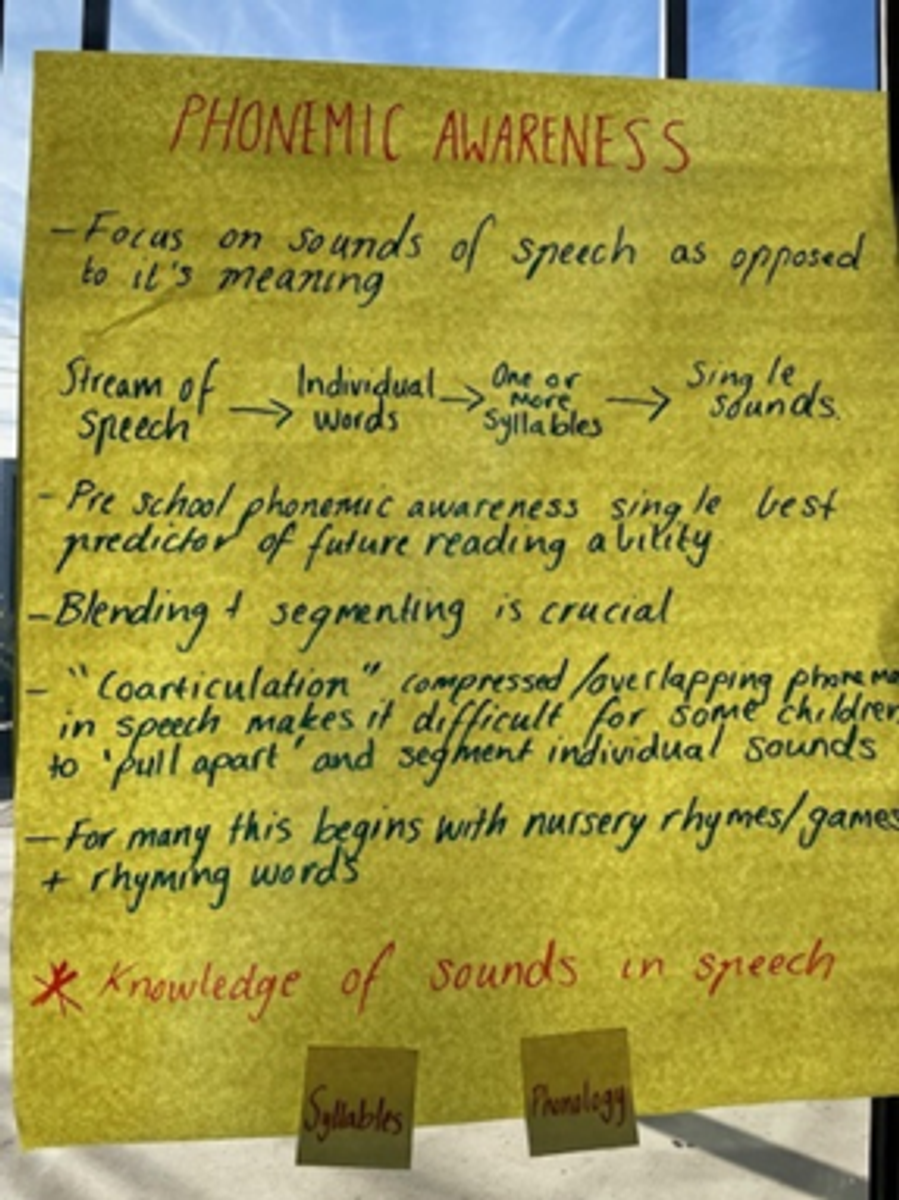 PHONEMIC AWARENESS
- Focus on sounds of speech as opposed
to it's meaning
Stream of speech → Individual words → One or more Syllables → Single sounds.
- Pre school phonemic awareness single best
predictor of future reading ability
- Blending + segmenting is crucial
- "Coarticulation" compressed/overlapping
in speech makes it difficult for some children
to 'pull apart' and segment individual sounds
- For many this begins with nursery rhymes/games
+ rhyming words
* Knowledge of sounds in speech
Syllables
Phonology